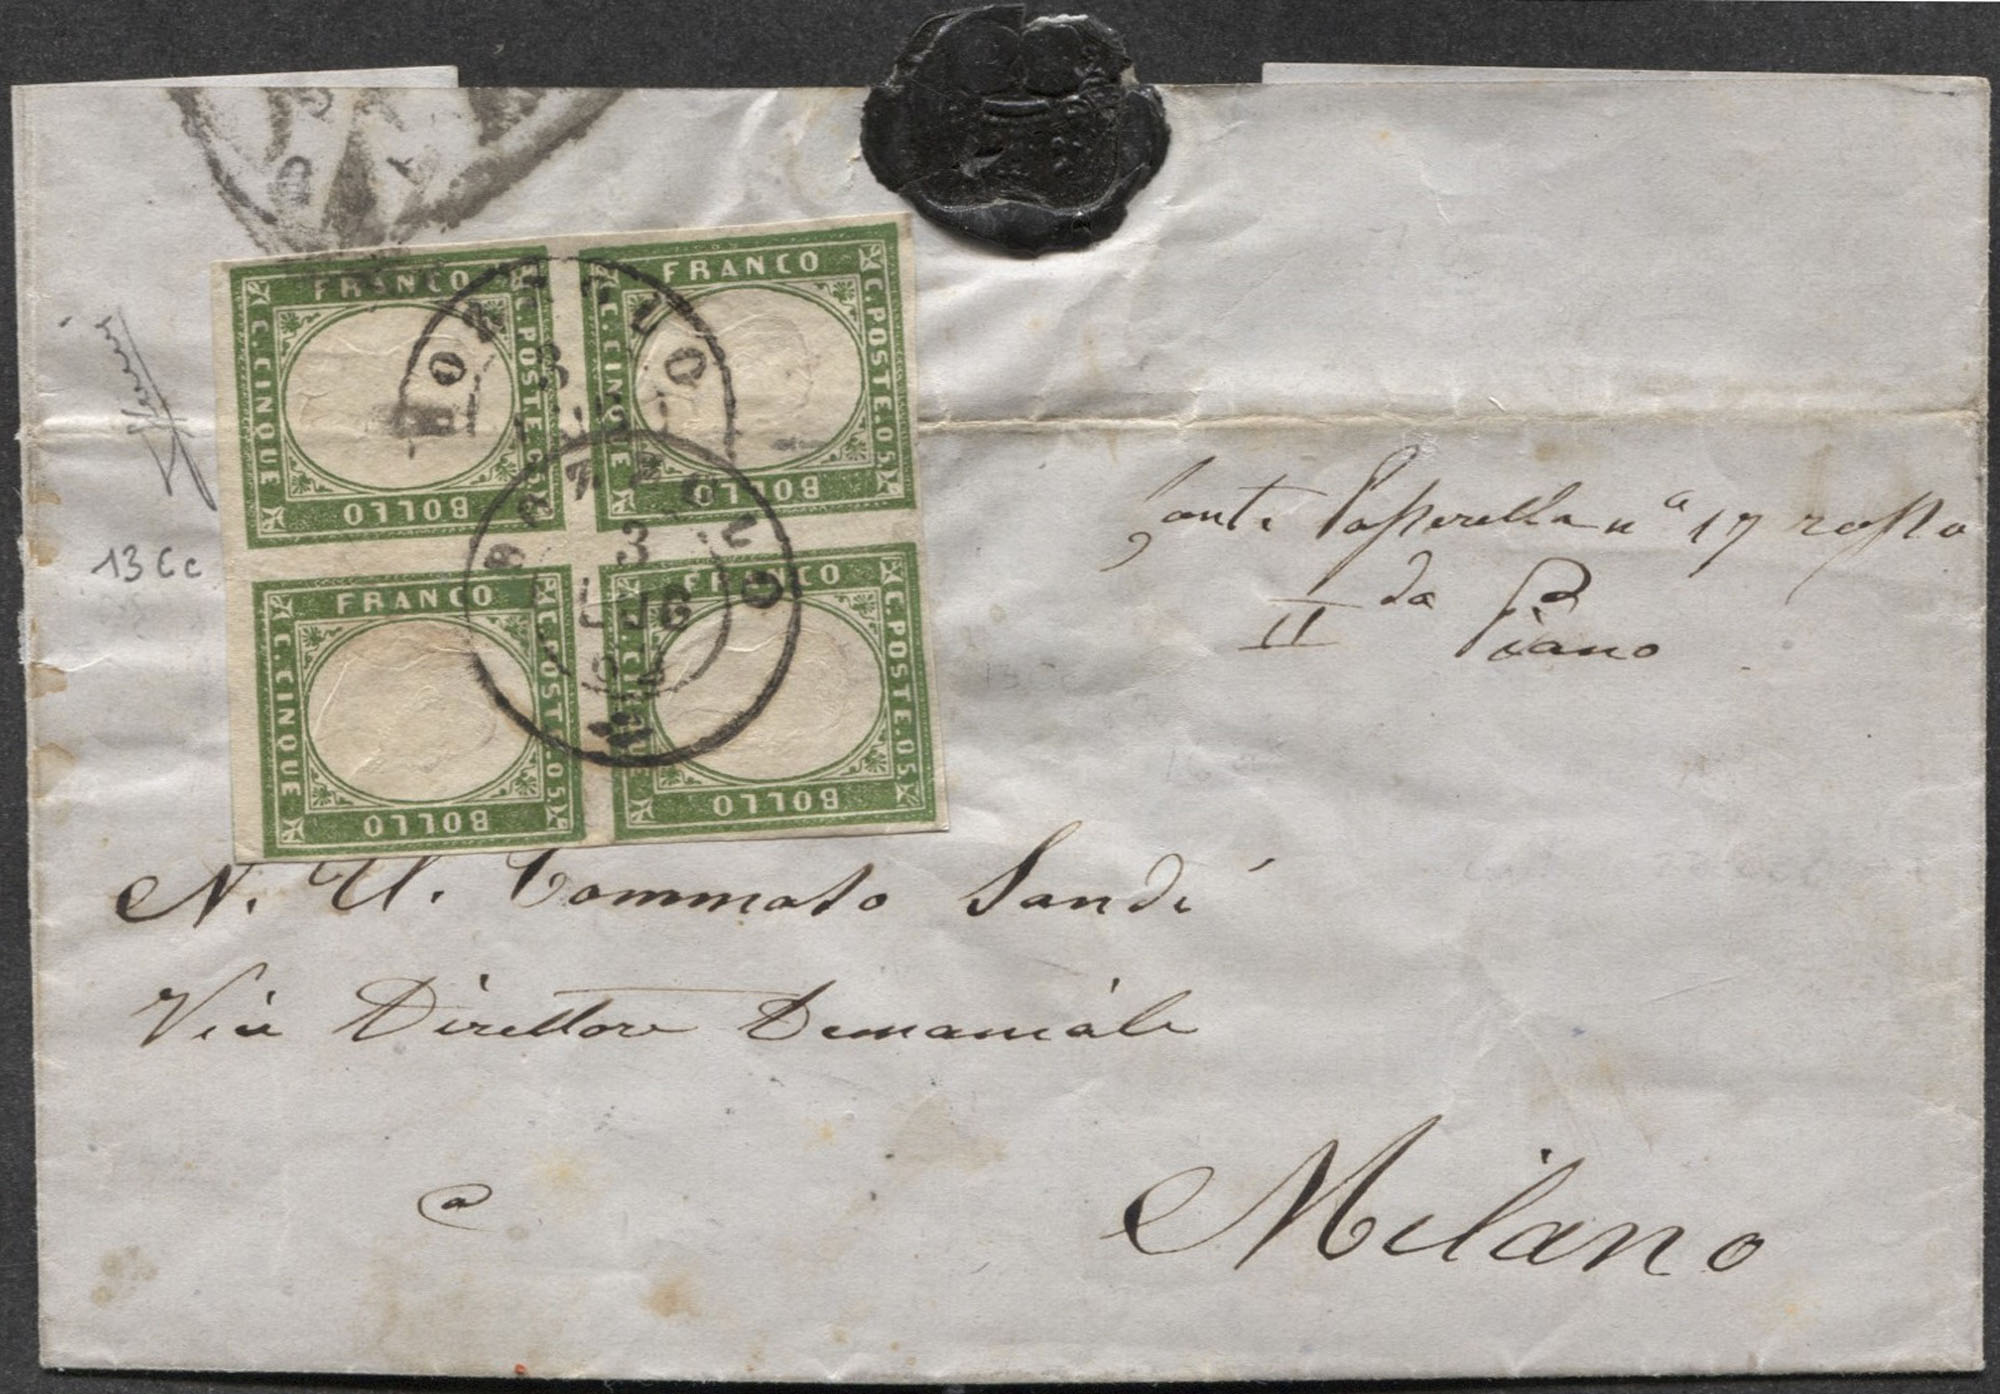 FRANCO
C. POSTE. C. 05.
BOLLO
C. CINQUE
FRANCO
C. POSTE. 05.
BOLLO
C. CINQUE
FRANCO
C. POSTE. 05.
BOLLO
C. CINQUE
FRANCO
C. POSTE. 05.
BOLLO
C. CINQUE
3
LUG
13 Cc
n° 17 rosso
da
II Piano
N. U. Tommaso Sandi
Via Direttore Demaniale
a
Milano